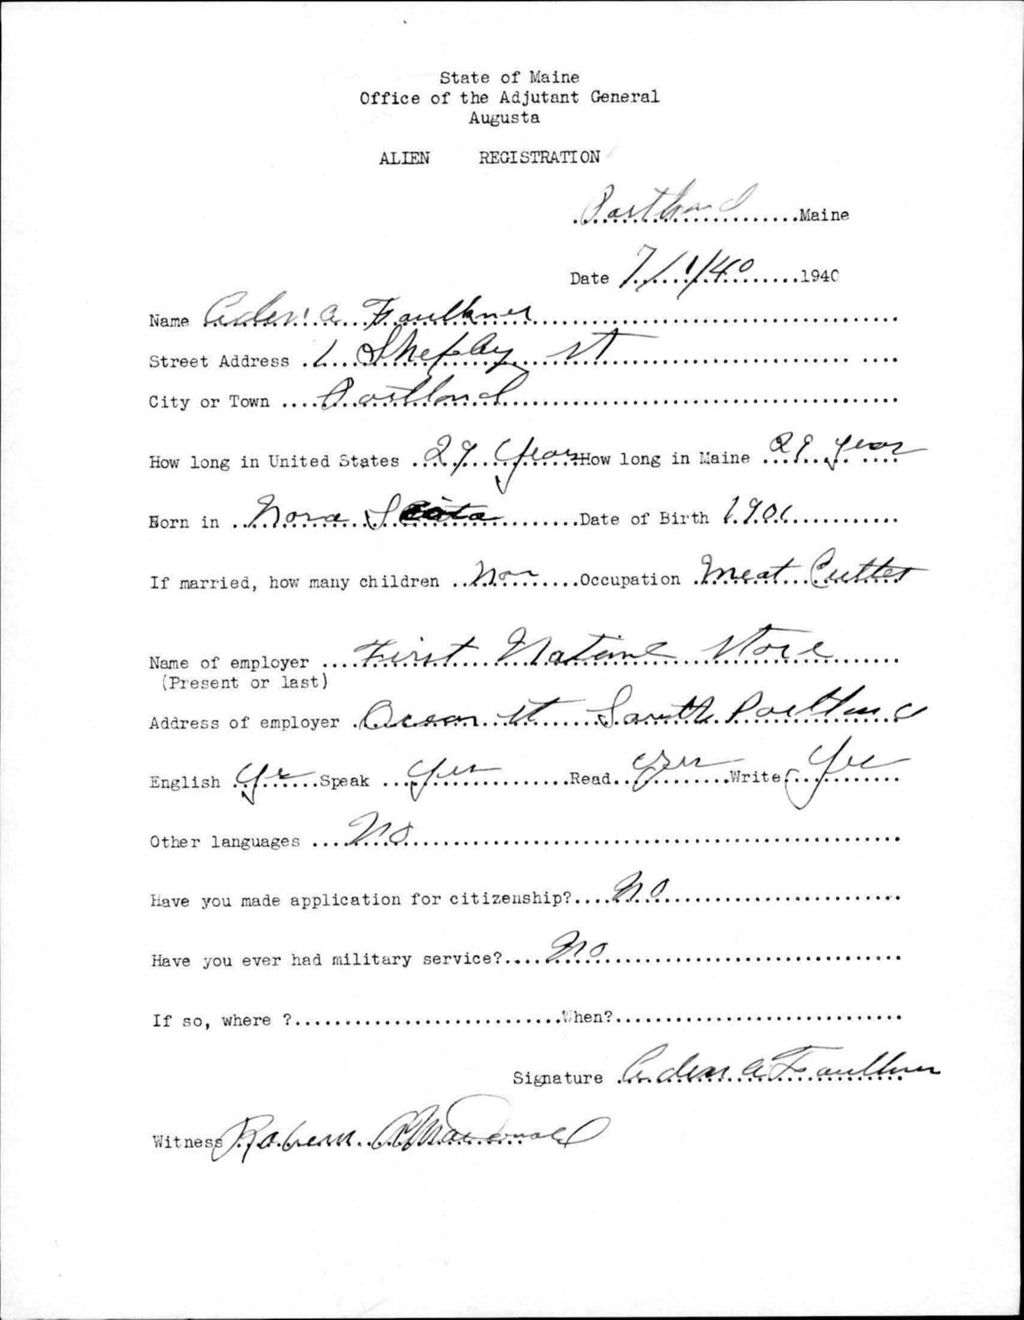 State of Maine
Office of the Adjutant General
Augusta
ALIEN REGISTRATION
Portland Maine
Date 7/1/40 1940
Name Aden A Faulkner
Street Address 1 Shepley St
City or Town Portland
How long in United States 29 Years How long in Maine 29 years
Born in Nova Scotia Date of Birth 1901
If married, how many children Occupation Meat Cutter
Name of employer First National Store
(Present or last)
Address of employer Ocean St South Portland
English Yes Speak Yes Read Yes Write Yes
Other languages No
Have you made application for citizenship? No
Have you ever had military service? No
If so, where ? When?
Signature Aden A Faulkner
Witness MacDonald